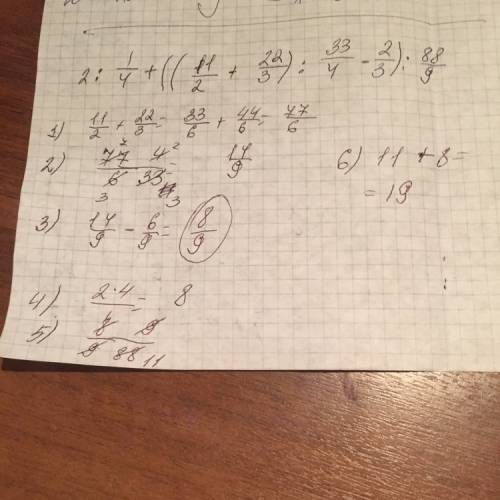 2 : 1/4 + ((11/2 + 22/3) : 33/4 - 2/3) : 88/9
1) 11/2 + 22/3 = 33/6 + 44/6 = 77/6
2) 77 4 / 6 33 = 14/9
3) 14/9 - 6/9 = 8/9
4) 2·4 = 8
5) 8 9 / 9 88 11
6) 11 + 8 =
= 19